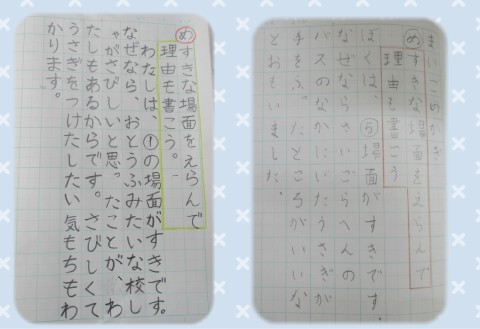 めすきな場面をえらんで
理由も書こう。
わたしは、①の場面がすきです。
なぜなら、おとうふみたいな校し
ゃがさびしいと思ったことが、わ
たしもあるからです。さびしくて
うさぎをつけたしたい気もちもわ
かります。
まいごのかぎ
めすきな場面をえらんで
理由も書こう
ぼくは、⑤場面がすきです
なぜならさいごらへんの
バスのなかにいたうさぎが
手をふったところがいいな
とおもいました。